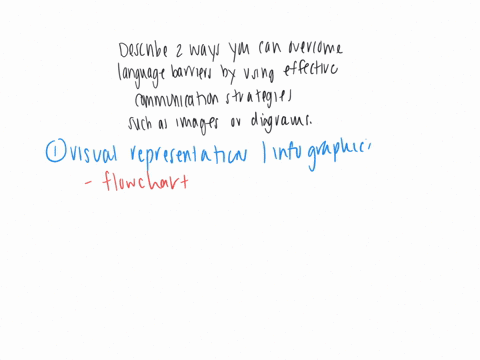 Describe 2 ways you can overcome
language barriers by using effective
communication strategies
such as images or diagrams.
① visual representation / infographics
- flowchart